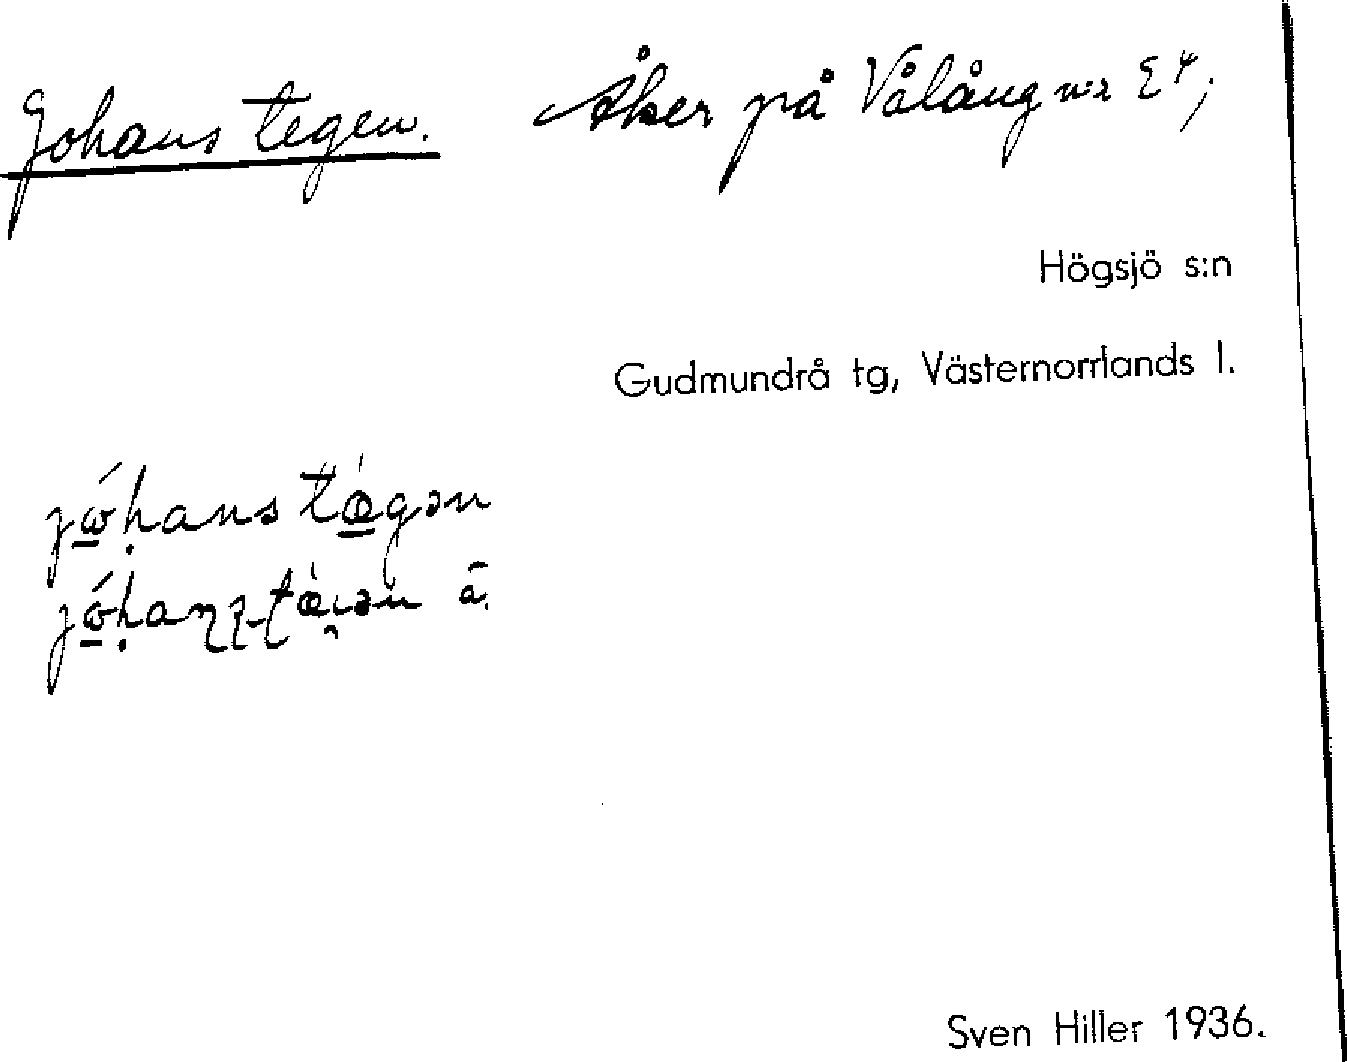 Johans tegen. Åker på Vålång n:r 2⁴;
Högsjö s:n
Gudmundrå tg, Västernorrlands l.
jó̠ḥans tǽgən
Sven Hiller 1936.